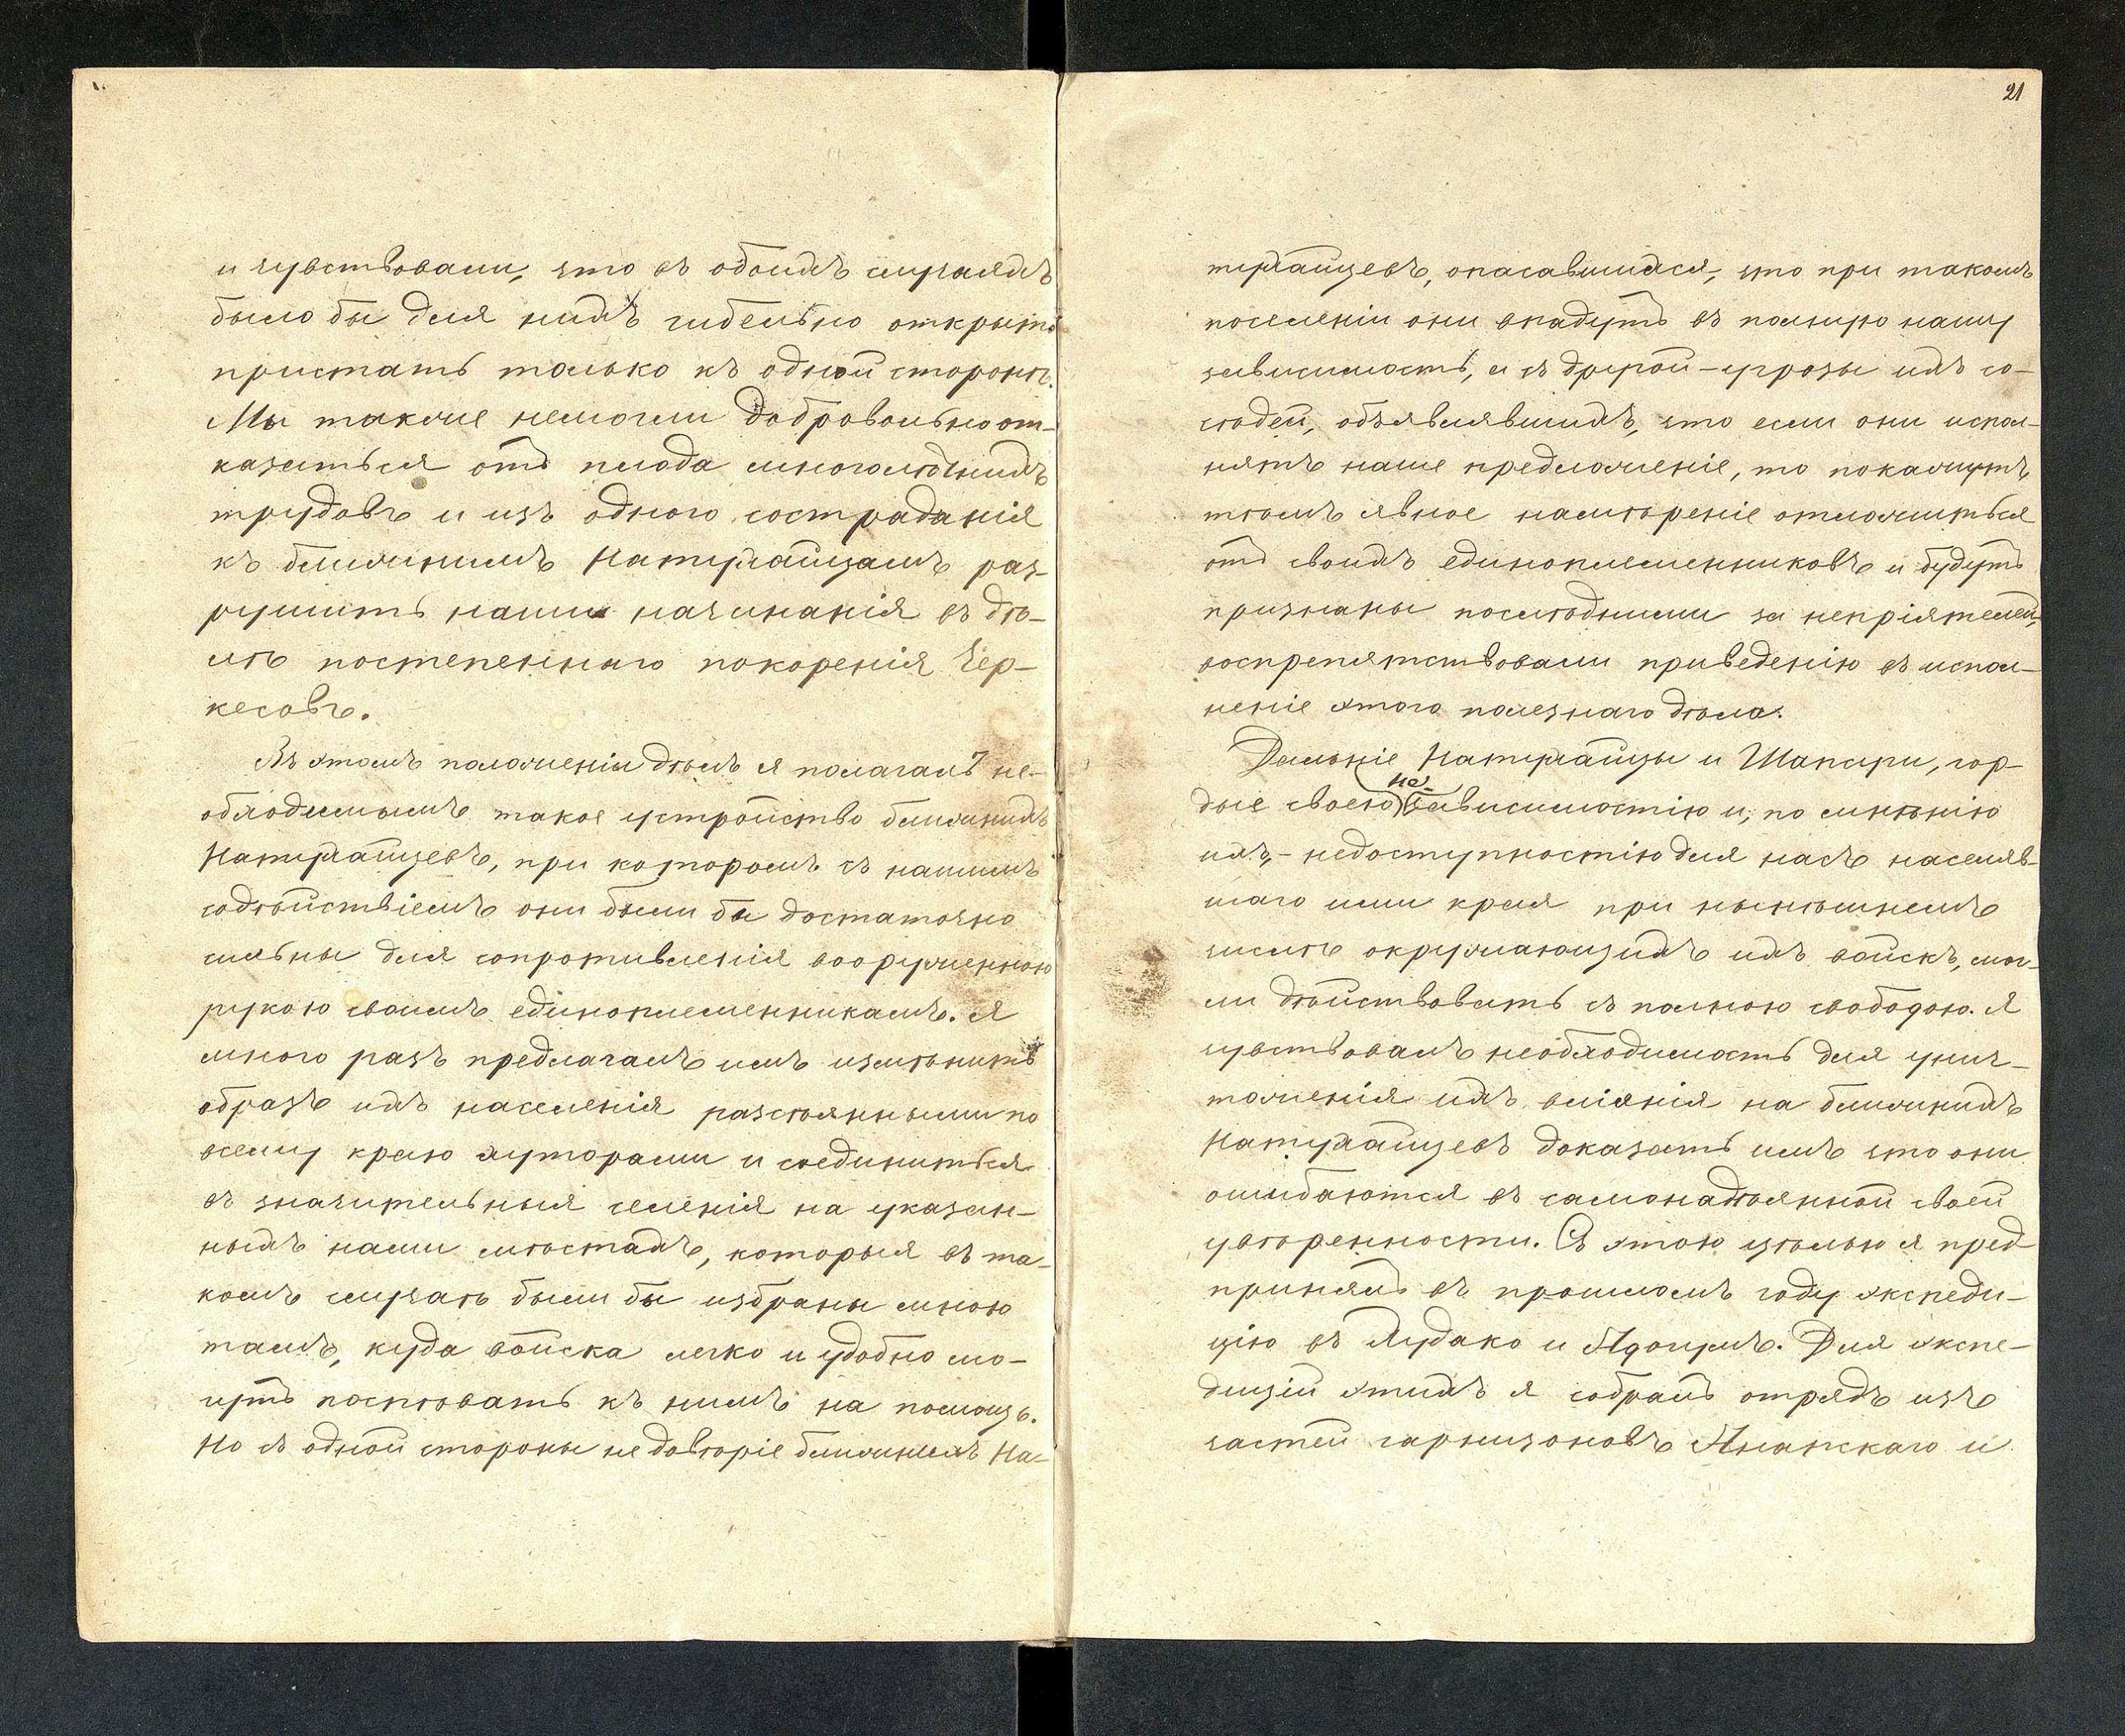 и чувствовали, что въ обоихъ случаяхъ
было бы для нихъ гибельно открыто
пристать только къ одной сторонѣ.
Мы также немогли добровольно от-
казаться отъ плода многолѣтнихъ
трудовъ и изъ одного состраданія
къ ближнимъ Натухайцамъ раз-
рушить наши начинанія въ дѣ-
лѣ постепеннаго покоренія Чер-
кесовъ.
Въ этомъ положеніи дѣлъ я полагалъ не-
обходимымъ такое устройство ближнихъ
Натухайцевъ, при которомъ съ нашимъ
содѣйствіемъ они были бы достаточно
сильны для сопротивленія вооруженною
рукою своимъ единоплеменникамъ. Я
много разъ предлагалъ имъ измѣнить
образъ ихъ населенія разсѣянными по
всему краю хуторами и соединиться
въ значительныя селенія на указан-
ныхъ нами мѣстахъ, которыя въ та-
комъ случаѣ были бы избраны мною
тамъ, куда войска легко и удобно мо-
гутъ поспѣвать къ нимъ на помощь.
Но съ одной стороны недовѣріе ближнихъ На-
21
тухайцевъ, опасавшихся, что при такомъ
поселеніи они впадутъ въ полную нашу
зависимость, а съ другой - угрозы ихъ со-
сѣдей, объявлявшихъ, что если они испол-
нятъ наше предложеніе, то покажутъ
тѣмъ явное намѣреніе отложиться
отъ своихъ единоплеменниковъ и будутъ
признаны послѣдними за непріятелей,
воспрепятствовали приведенію въ испол-
неніе этого полезнаго дѣла.
Дальніе Натухайцы и Шапсуги, гор-
дые своею независимостію и, по мнѣнію
ихъ, - недоступностію для насъ населяв-
шаго ими края при нынѣшнемъ
числѣ окружающихъ ихъ войскъ, мог-
ли дѣйствовать съ полною свободою. Я
чувствовалъ необходимость для унич-
тоженія ихъ вліянія на ближнихъ
Натухайцевъ доказать имъ что они
ошибаются въ самонадѣянной своей
увѣренности. Съ этою цѣлью я пред-
принялъ въ прошломъ году экспеди-
цію въ Худако и Адагумъ. Для экспе-
дицій этихъ я собралъ отрядъ изъ
частей гарнизоновъ Анапскаго и